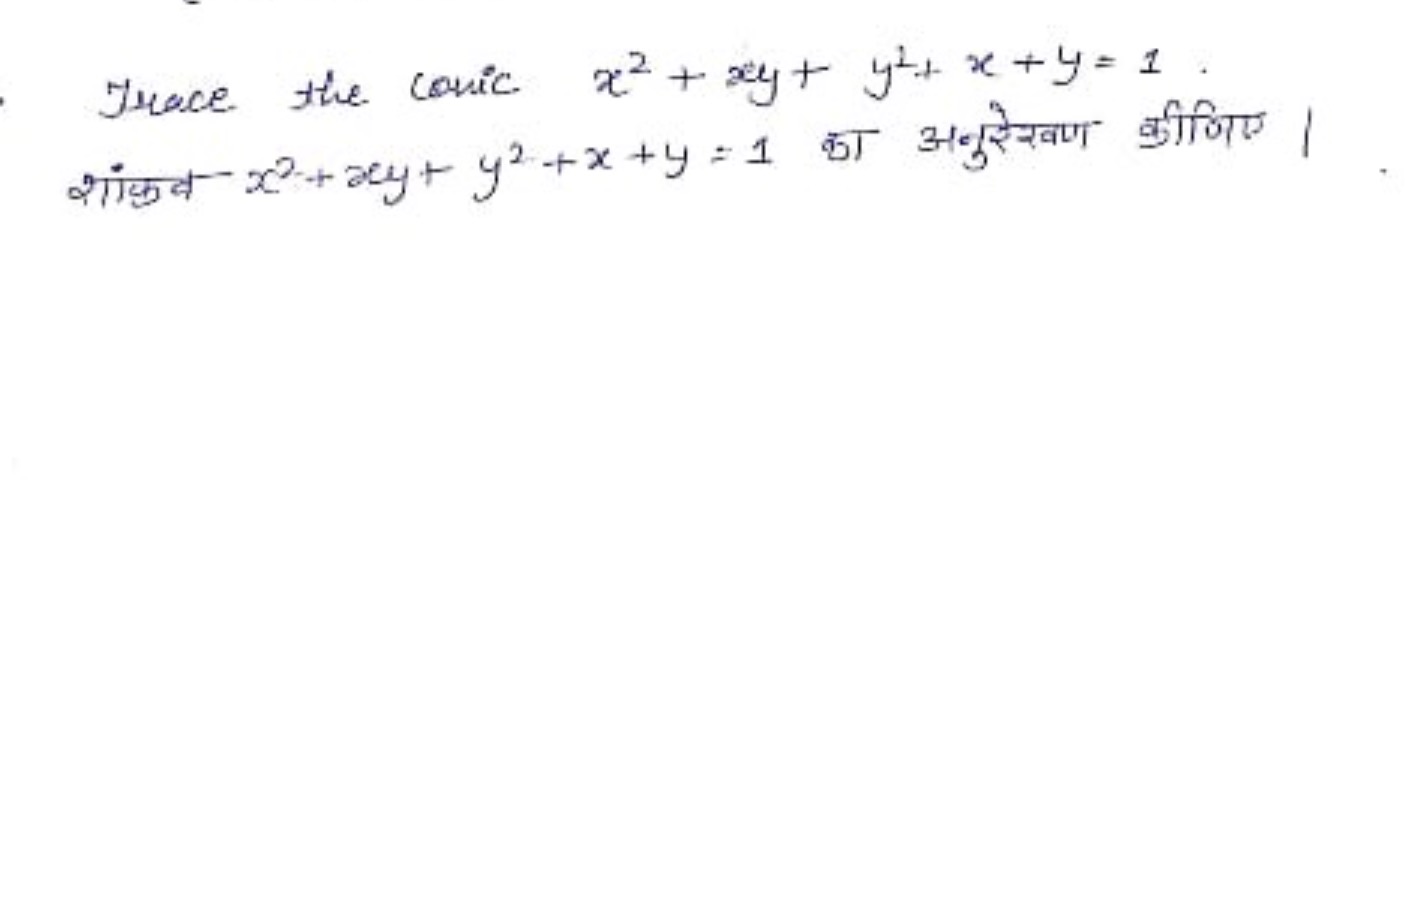 Trace the conic x² + xy + y² + x + y = 1 .
शांकव x² + xy + y² + x + y = 1 का अनुरेखण कीजिए |